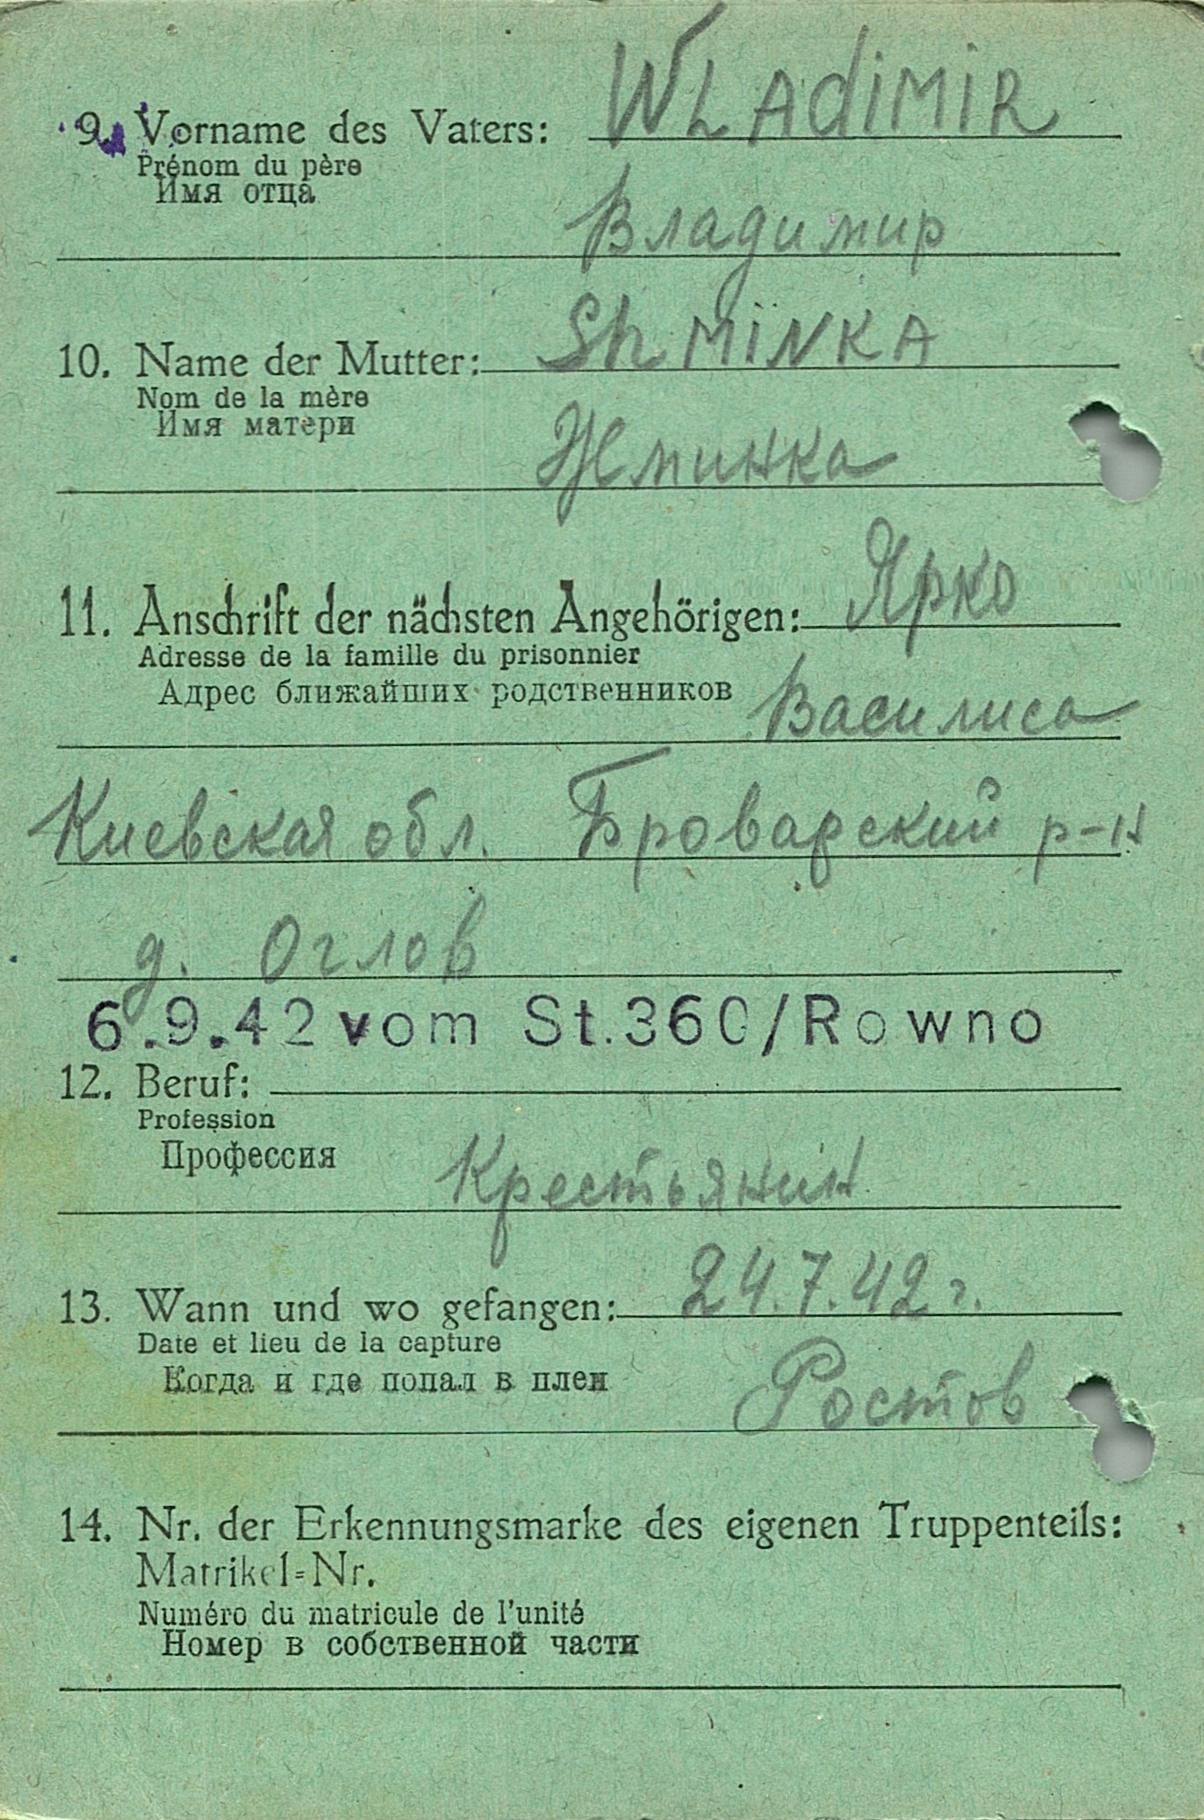 9. Vorname des Vaters: WLAdiMIR
Prénom du père
Имя отца
Владимир
10. Name der Mutter: Sh MiNKA
Nom de la mère
Имя матери
Жминка
11. Anschrift der nächsten Angehörigen: Ярко
Adresse de la famille du prisonnier
Адрес ближайших родственников
Василиса
Киевская обл. Броварский р-н
д. Оглов
6.9.42 vom St.360/Rowno
12. Beruf:
Profession
Профессия
Крестьянин
13. Wann und wo gefangen: 24.7.42 г.
Date et lieu de la capture
Когда и где попал в плен
Ростов
14. Nr. der Erkennungsmarke des eigenen Truppenteils:
Matrikel=Nr.
Numéro du matricule de l'unité
Номер в собственной части